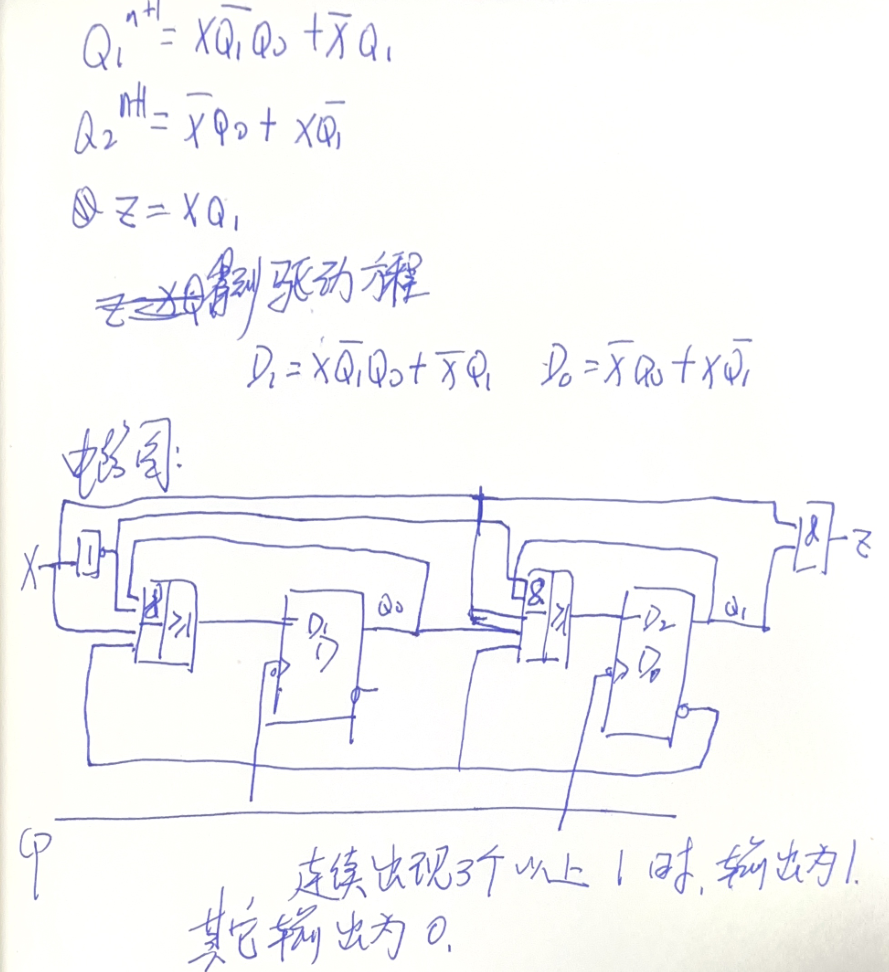 Q₁ⁿ⁺¹ = XQ̅₁Q₀ + X̅Q₁
Q₂ⁿ⁺¹ = X̅Q₀ + XQ̅₁
Z = XQ₁
得到驱动方程
D₁ = XQ̅₁Q₀ + X̅Q₁ D₀ = X̅Q₀ + XQ̅₁
电路图:
X 1 & ≥1 D₁ D Q₀ & ≥1 D₂ D₀ Q₁ & Z
CP
连续出现3个以上1时,输出为1.
其它输出为0.